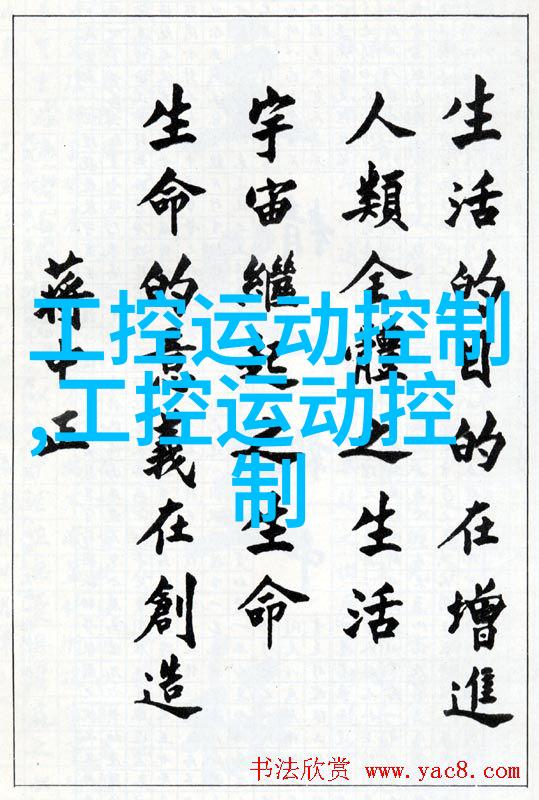 生活的目的在增進
人類全體之生活
宇宙繼起之生命
生命的意義在創造
蔣中正
工控运动控制
,工控运动控
制
书法欣赏 www.yac8.com